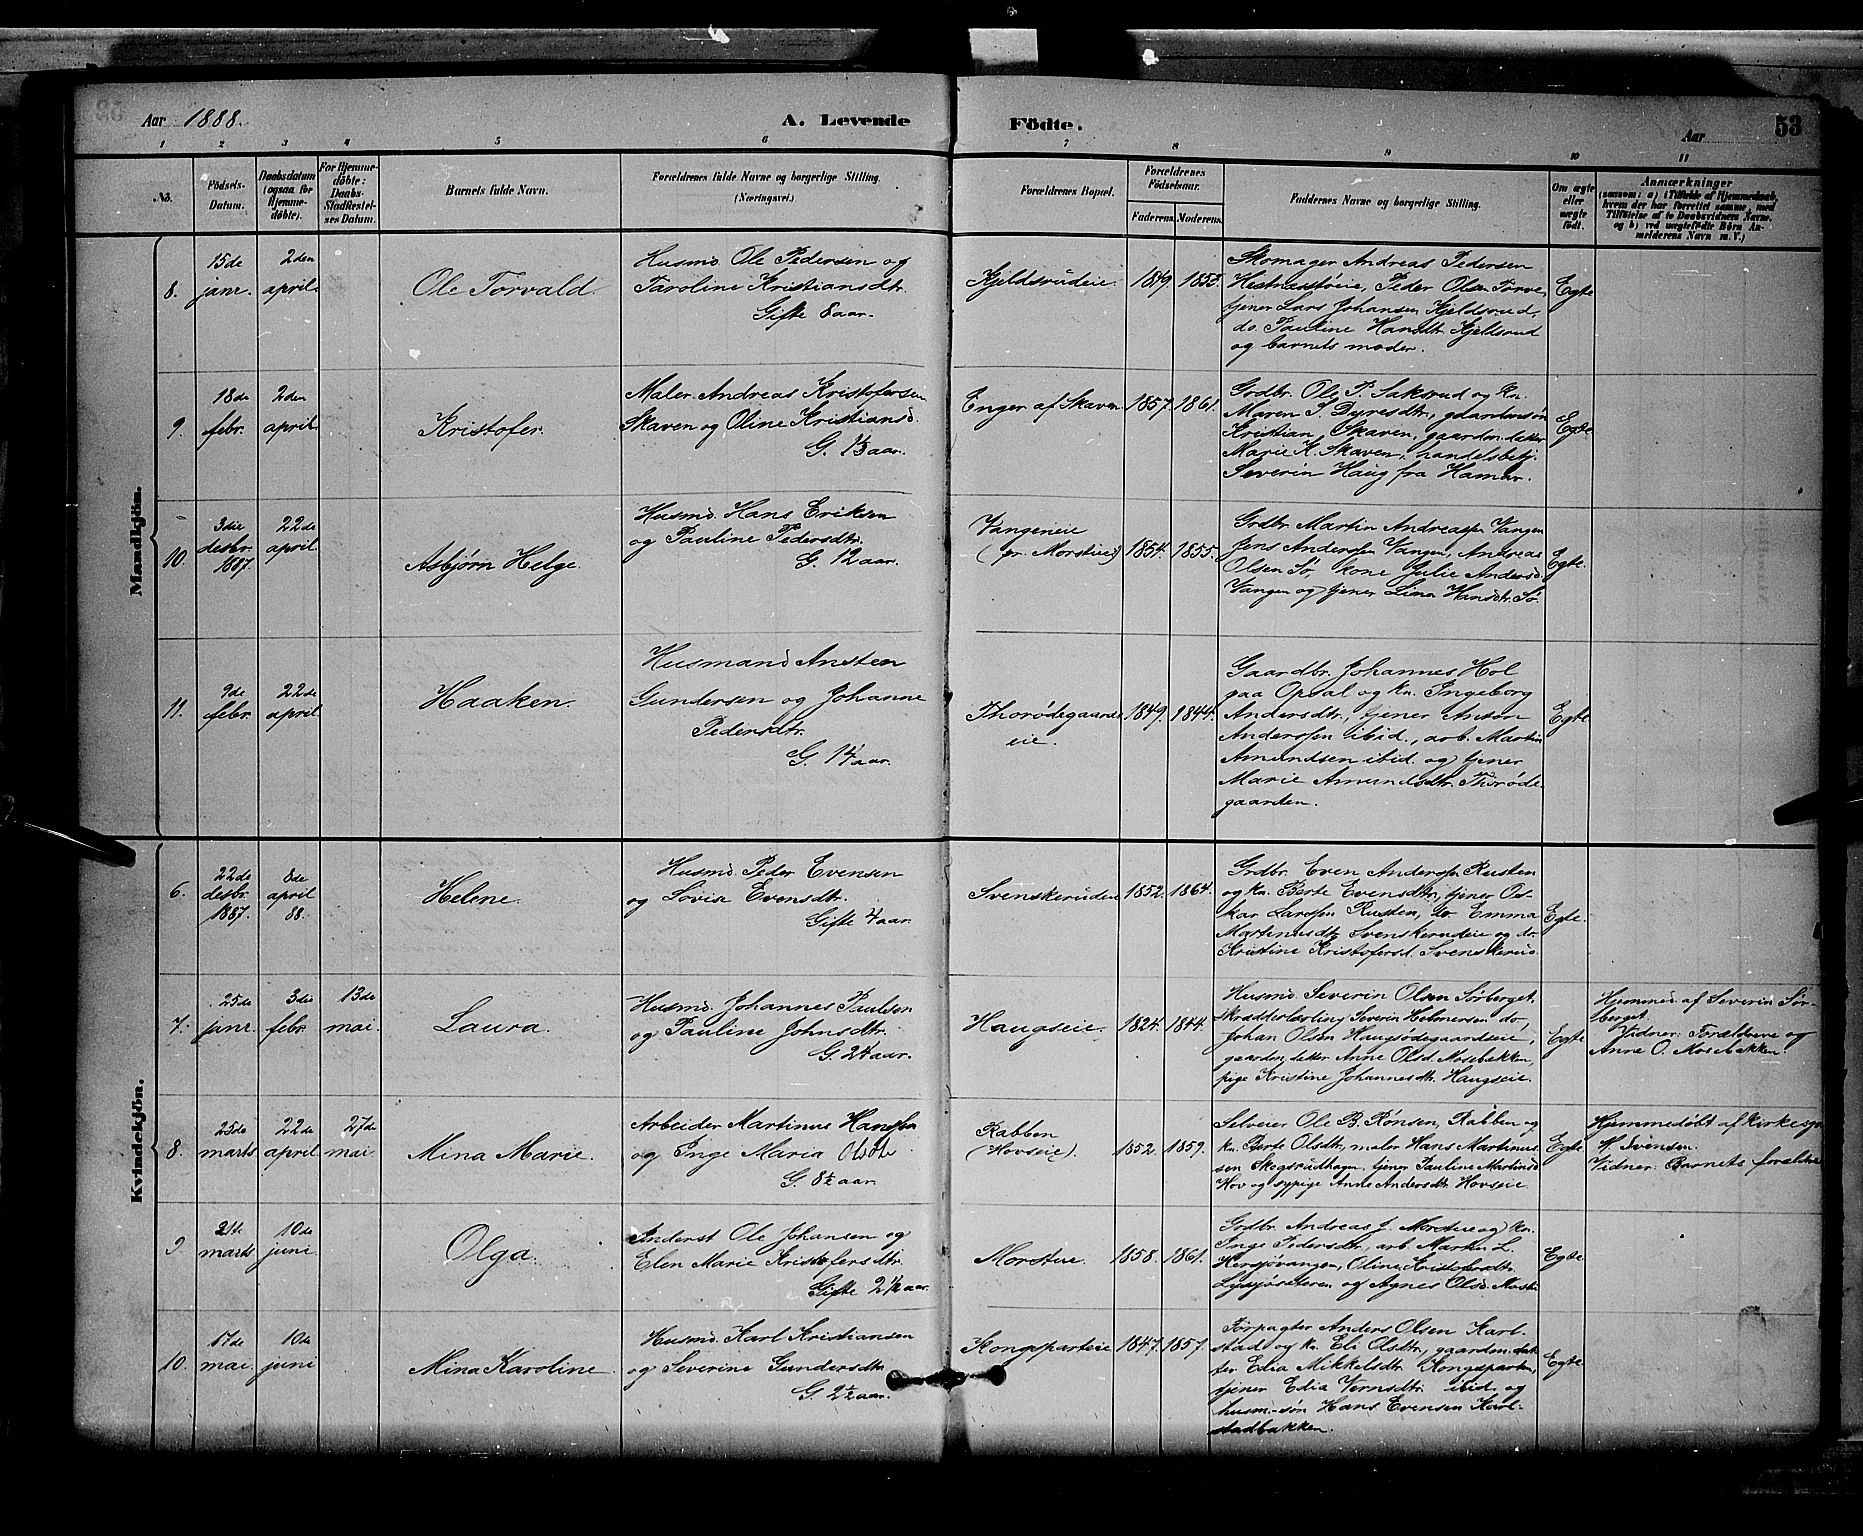 Aar 1888.
A. Levende Födte.
Aar
53
1 2 3 4 5 6 7 8 9 10 11
No.
Födsels-Datum.
Daabsdatum (ogsaa for Hjemmedöbte).
For Hjemmedöbte: Daabs-Stadfæstelses Datum.
Barnets fulde Navn.
Forældrenes fulde Navne og borgerlige Stilling. (Næringsvei.)
Forældrenes Bopæl.
Forældrenes Födselsaar.
Faderens. Moderens.
Faddernes Navne og borgerlige Stilling.
Om ægte eller uægte födt.
Anmærkninger
(saasom: a) i Tilfælde af Hjemmedaab, hvem der har forrettet samme, med Tilföielse af to Daabsvidners Navne. og b) ved uægtefödte Börn Anmelderens Navn m. V.)
Mandkjön.
8.
15de janr.
2den april.
Ole Torvald.
Husmd. Ole Pedersen og
Karoline Kristiansdtr.
Gifte 8 aar.
Kjeldsrudeie.
1849
1853.
Skomager Andreas Pedersen
Hestnæsstøeie, Peder Olsen Torve,
tjener Lars Johansen Kjeldsrud,
do. Pauline Hansdtr. Kjeldsrud
og barnets moder.
Egte
9.
18de febr.
2den april.
Kristofer.
Maler Andreas Kristofersen
Skaven og Oline Kristiansd.
G. 1½ aar.
Enger af Skaven
1857.
1861.
Grdbr. Ole P. Saksrud og kn.
Maren S. Dyresdtr., gaardmsøn
Kristian Skaven, gaardm. datter
Marie K. Skaven, handelsbetj.
Severin Haug fra Hamar.
Egte
10.
3die desbr. 1887.
22de april
Asbjørn Helge.
Husmd. Hans Eriksen
og Pauline Pedersdtr.
G. 12 aar.
Vangeneie
(pr. Morstuei)
1854.
1855.
Grdbr. Martin Andreasen Vangen
Jens Anderssen Vangen, Andreas
Olsen Sø, kone Julie Andersd.
Vangen og tjener Lina Hansdtr. Sø.
Egte.
11.
9de febr.
22de april
Haaken.
Husmand Ansten
Gundersen og Johanne
Pedersdtr.
G. 14 aar.
Thorødegaards
eie.
1849.
1844.
Gaardbr. Johannes Hol
gaa Opsal og kn. Ingeborg
Andersdtr., tjener Anton
Anderssen ibid., arb. Martin
Amundsen ibid og tjener
Marie Amundsdtr. Thorøde
gaarden.
Egte
Kvindekjön.
6.
22de desbr. 1887.
8de april 88.
Helene.
Husmd. Peder Evensen
og Lovise Evensdtr.
Gifte 4 aar.
Svenskeruden
1852.
1864.
Grdbr. Even Anderssen Rusten
og kn. Berte Evensdtr., tjener Os-
kar Larssen Rusten, do Emma
Martinusdtr Svenskerudeie og do.
Kristine Kristofersd. Svenskerud
Egte.
7.
25de janr.
3die febr.
13de mai.
Laura.
Husmd. Johannes Paulsen
og Pauline Johnsdtr.
G. 24 aar.
Haugseie.
1824.
1844.
Husmd. Severin Olsen Sørberget,
skrædderlærling Severin Helmersen do,
Johan Olsen Haugsødegaardseie,
gaardm. datter Anne Olsd. Mosebakken,
pige Kristine Johannesdtr. Haugseie.
Egte
Hjemmed. af Severin Sør-
berget.
Vidner: Forældrene og
Anne O. Mosebakken.
8.
25de marts
22de april
27de mai.
Mina Marie.
Arbeider Martinus Hanssen
og Inge Maria Olsdtr.
G. 8½ aar.
Rabben
(Hovseie)
1852.
1859.
Selveier Ole B. Rønsen, Rabben og
kn. Berte Olsdtr., maler Hans Martinus
sen Skogsrudhagen, tjener Pauline Martinsd.
Hov og sypige Anne Andersdtr. Hovseie.
Egte
Hjemmedøbt af kirkesgr.
H. Svensen.
Vidner: Barnets forældre
9.
21de marts
10de juni
Olga.
Inderst Ole Johansen og
Elen Marie Kristofersdtr.
Gifte 2½ aar.
Morstue.
1858.
1861.
Grdbr. Andreas J. Morstue og kn.
Inge Pedersdtr., arb. Martin L.
Hersjøvangen, Oline Kristofersdtr.
Lysjøseteren og Agnes Olsd. Morstu
Egte
10.
17de mai.
10de juni
Mina Karoline.
Husmd. Karl Kristiansen
og Severine Gundersdtr.
G. 2½ aar.
Kongsparteie
1847.
1857.
Forpagter Anders Olsen Karl-
stad og kn. Eli Olsdtr., gaardm. dat-
ter Edia Mikkelsdtr. Kongsparten,
tjener Edia Vernsdtr. ibid. og
husm.-søn Hans Evensen Karl-
stadbakken.
Egte